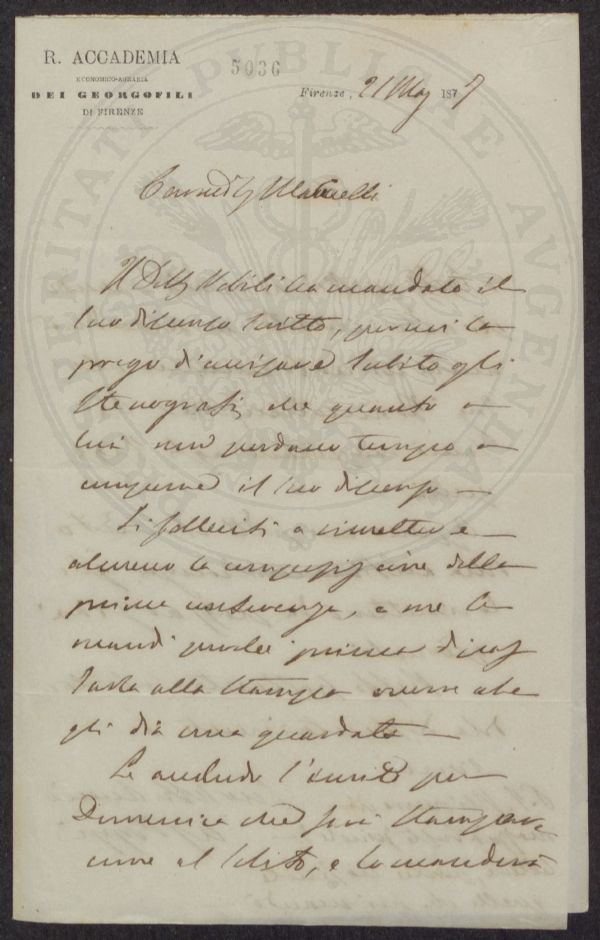 R. ACCADEMIA
ECONOMICO-AGRARIA
DEI GEORGOFILI
DI FIRENZE
5036
Firenze, 21 Mag 1877
Il Dott. Nobili ha mandato il
suo discorso scritto, perciò la
prego d'avvisare subito gli
stenografi che quanto a
lui non perdano tempo a
comporre il suo discorso
Si solleciti a rimettere
almeno la composizione della
prima conferenza, e me la
mandi perché prima di
darla alla stampa occorre che
gli dia una guardata
Le accludo l'invito per
Domenica che farà stampare
come al solito, e lo manderà
PUBLICAE
AVGENDAE
PROSPERITATI